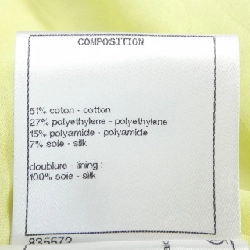 COMPOSITION
51% coton - cotton
27% polyethylene - polyethylene
15% polyamide - polyamide
7% soie - silk
doublure - lining :
100% soie - silk